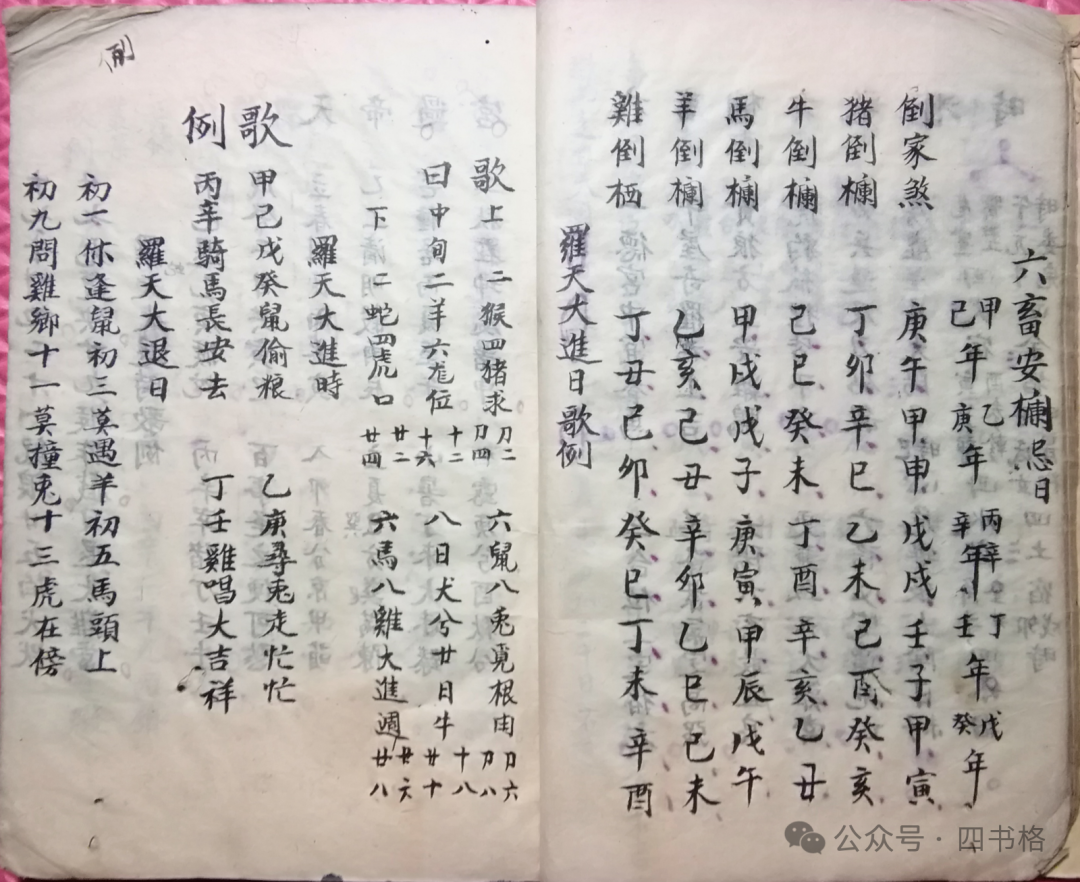 六畜安欄忌日
甲己年 乙庚年 丙辛年 丁壬年 戊癸年
倒家煞 庚午甲申戊戌壬子甲寅
猪倒欄 丁卯辛巳乙未己酉癸亥
牛倒欄 己巳癸未丁酉辛亥乙丑
馬倒欄 甲戌戊子庚寅甲辰戊午
羊倒欄 乙亥己丑辛卯乙巳己未
雞倒栖 丁丑己卯癸巳丁未辛酉
羅天大進日歌例
歌上 二猴四猪求 刀二 刀四 六鼠八兎覓根由 刀六 刀八
曰中旬二羊六龙位 十二 十六 八日犬兮廿日牛 十八 廿十
下二蛇四虎口 廿二 廿四 六馬八雞大進週 廿六 廿八
羅天大進時
歌例
甲己戊癸鼠偷粮 乙庚尋兎走忙忙
丙辛騎馬長安去 丁壬雞唱大吉祥
羅天大退日
初一休逢鼠初三莫遇羊初五馬頭上
初九問雞鄉十一莫撞兎十三虎在傍
例
公众号·四书格